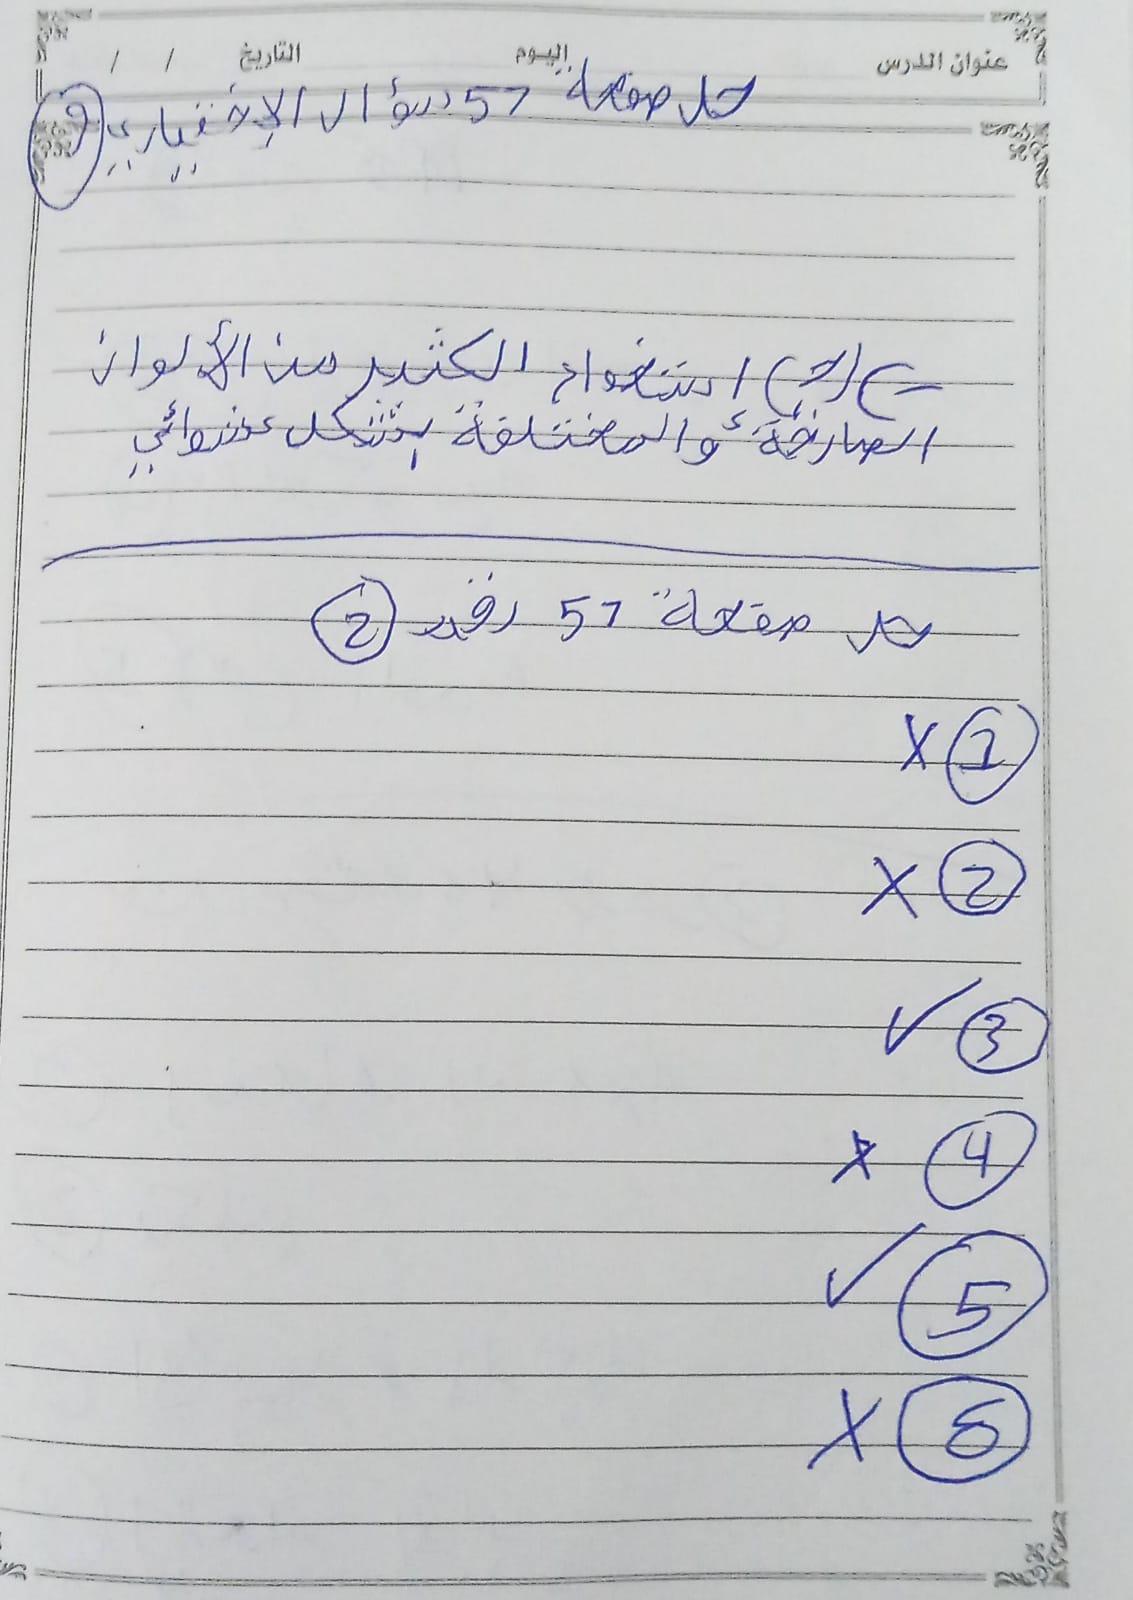 عنوان الدرس اليوم التاريخ / /
حل صفحة 57 سؤال الإختياري 9
ج) (ج) استخدام الكثير من الألوان
الصارخة والمختلفة بشكل عشوائي
حل صفحة 57 رقم 2
1 X
2 X
3 ✓
4 X
5 ✓
6 X